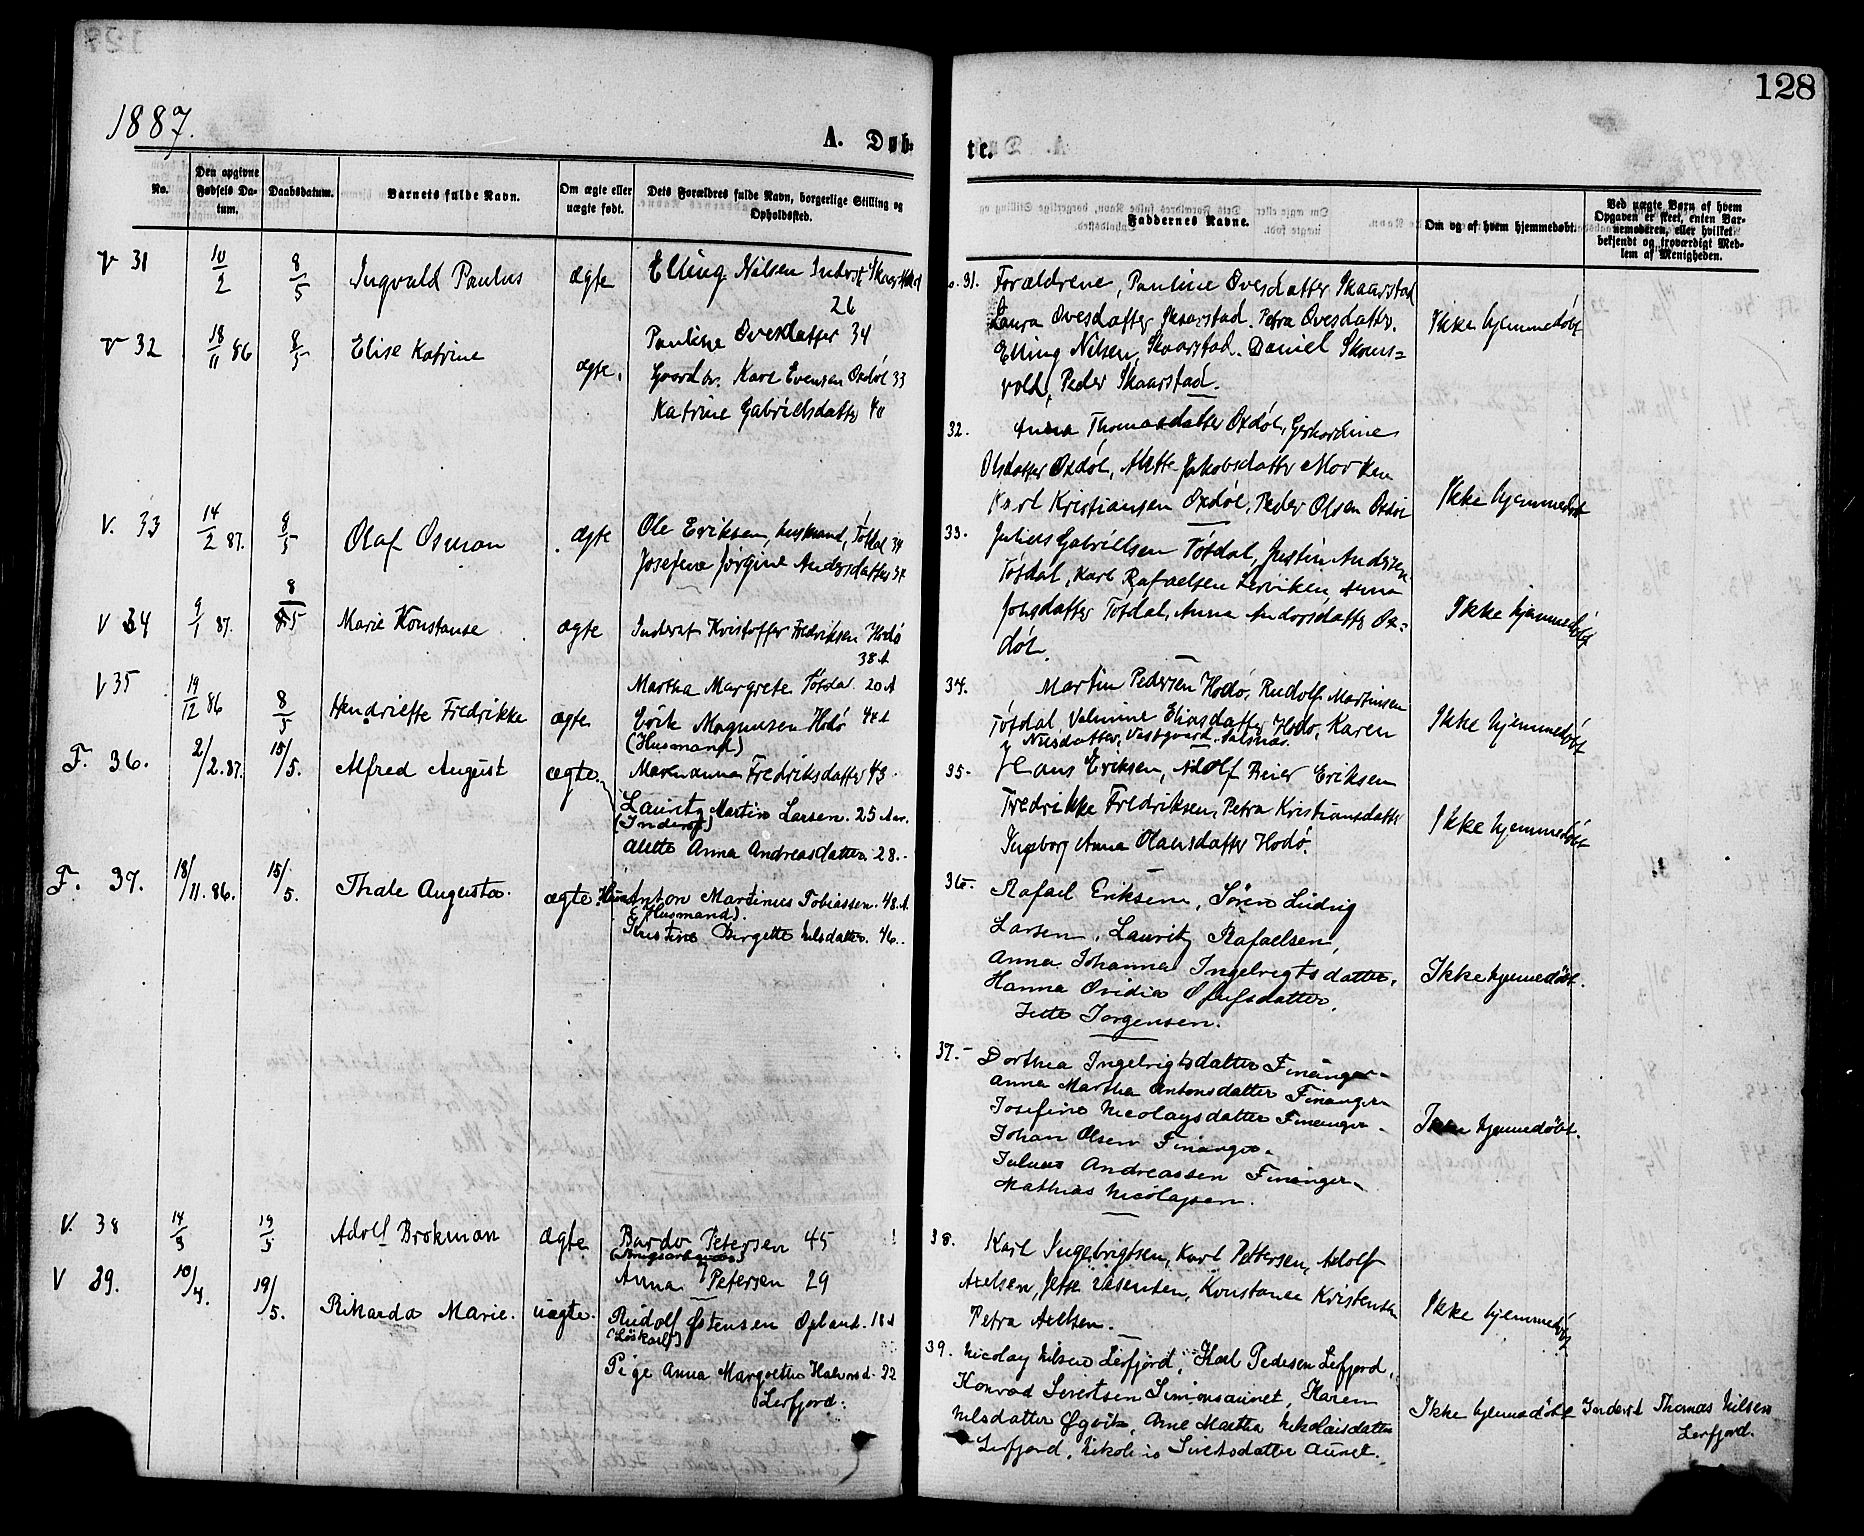 128
1887.
A. Døb-
te.
No.
Den opgivne Fødsels Da-tum.
Daabsdatum.
Barnets fulde Navn.
Om ægte eller uægte født.
Dets Forældres fulde Navn, borgerlige Stilling og Opholdssted.
Faddernes Navne.
Om og af hvem hjemmedøbt.
Ved uægte Børn af hvem Opgaven er skeet, enten Bar-nemoderen, eller hvilket bekjendt og troværdigt Med-lem af Menigheden.
V 31 10/2 8/5 Ingvald Paulus ægte Elling Nilsen Inderst Skaarstad
26
V 32 18/11 86 8/5 Elise Katrine ægte. Pauline Ovesdatter 34
Gaardbr. Karl Evensen Oxdøl 33
Katrine Gabrielsdatter 40
V. 33 14/2 87. 8/5 Olaf Osman ægte Ole Eriksen, husmand, Tøtdal 39
Josefine Jørgine Andersdatter 37
V 34 9/1 87. 8/5 Marie Konstanse ægte Inderst Kristoffer Fredriksen Hodø
38 A
Martha Margrete Tøtdal 20 A
V 35 19/12 86 8/5 Hendriette Fredrikke ægte Eørik Magnussen Hodø 42 A
(Husmand)
Marenanna Fredriksdatter 43
F. 36. 2/2.87. 15/5. Alfred August ægte. Lauritz Martin Larsen. 25 Aar.
(Inderst)
Alette Anna Andreasdatter. 28.
F. 37. 18/11.86. 15/5. Thale Augusta. ægte. Anton Martinus Tobiassen. 48. A.
(Husmand).
Kristine Birgette Nilsdatter. 46.
V. 38 14/3 19/5 Adolf Brokman ægte Bardo Petersen 45
(Brugsarbeider)
Anna Petersen 29
V 39. 10/4. 19/5. Rikarda Marie. uægte. Rudolf Østensen Opland. 18 A
(Løskarl)
Pige Anna Margrethe Halvorsd. 22
Lerfjord.
31. Forældrene, Pauline Ovesdatter Skaarstad
Laura Ovesdatter Skaarstad. Petra Ovesdatter.
Elling Nilsen, Skaarstad. Daniel Skoms=
vold, Peder Skaarstad.
Ikke hjemmedøbt
32. Anna Thomasdatter Oxdøl, Gerhardine
Olsdatter Oxdøl, Mette Jakobsdatter Morken
Karl Kristiansen Oxdøl, Peder Olsen Oxdøl
Ikke hjemmedøbt
33. Julius Gabrielsen Tøtdal, Justin Andersen
Tøtdal, Karl Rafaelsen Lerviken, Anna
Jonsdatter Tøtdal, Anna Andorsdatter Ox=
døl.
Ikke hjemmedøbt
34. Martin Pedersen Hodø, Rudolf Martinsen
Tøtdal Valmine Eliasdatter Hodø, Karen
Nilsdatter, Vestgaard. Salsnæs.
Ikke hjemmedøbt
35. Hans Eriksen, Adolf Beier Eriksen
Fredrikke Fredriksen, Petra Kristiansdatter
Ingeborg Anna Olausdatter Hodø.
Ikke hjemmedøbt
36. Rafael Eriksen, Søren Ludvig
Larsen, Lauritz Rafaelsen,
Anna Johanna Ingebrigtsdatter,
Hanna Ovidia Olufsdatter,
Jette Jørgensen.
Ikke hjemmedøbt.
37. Dorthea Ingebrigtsdatter Finanger
Anna Martha Antonsdatter Finanger
Josefine Nicolaysdatter Finanger
Johan Olsen Finanger
Julius Andreassen Finanger
Mathias Nicolaysen.
Ikke hjemmedøbt.
38. Karl Ingebrigtsen, Karl Pettersen, Adolf
Axelsen, Jette Vesensen, Konstance Kristensen
Petra Axelsen.
Ikke hjemmedøbt
39. Nicolay Nilsen Lerfjord, Karl Pedersen Lerfjord,
Konrad Sivertsen Simonsaunet, Karen
Nilsdatter Øgvik, Arne Martha Nikolaisdatter
Lerfjord, Nikoline Sivertsdatter Aunet.
Ikke hjemmedøbt Inderst Thomas Nilsen
Lerfjord.